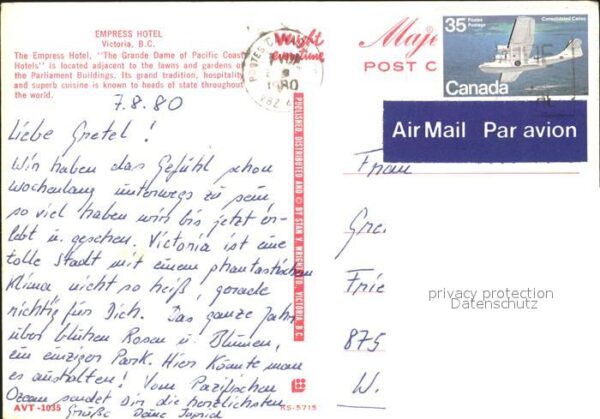 EMPRESS HOTEL
Victoria, B.C.
The Empress Hotel, "The Grande Dame of Pacific Coast
Hotels" is located adjacent to the lawns and gardens of
the Parliament Buildings. Its grand tradition, hospitality
and superb cuisine is known to heads of state throughout
the world.
7.8.80
Liebe Gretel!
Wir haben das Gefühl schon
wochenlang unterwegs zu sein,
so viel haben wir bis jetzt er-
lebt u. gesehen. Victoria ist eine
tolle Stadt mit einem phantastischen
Klima nicht so heiß, gerade
richtig für Dich. Das ganze Jahr
über blühen Rosen u. Blumen,
ein einziger Park. Hier könnte man
es aushalten! Vom Pazifischen
Ozean sendet dir die herzlichsten
Grüße Deine
AVT-1035
KS-5715
PUBLISHED, DISTRIBUTED AND © BY STAN V. WRIGHT LTD., VICTORIA, B.C.
1980
POST C
35 Postes Postage
Consolidated Canso
Canada
Air Mail Par avion
Frau
Gre
Frie
875
W.
privacy protection
Datenschutz